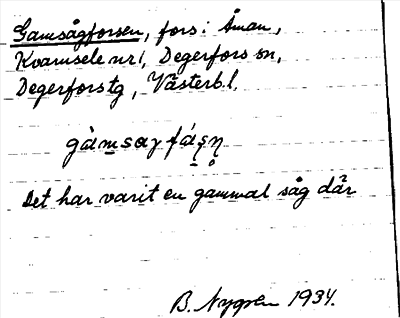 Gamsågforsen, fors i Åman,
Kvarnsele nr 1, Degerfors sn,
Degerfors tg, Västerb.l.
gàm̲saγfás̨n̥
Det har varit en gammal såg där
B. Nygren 1934.